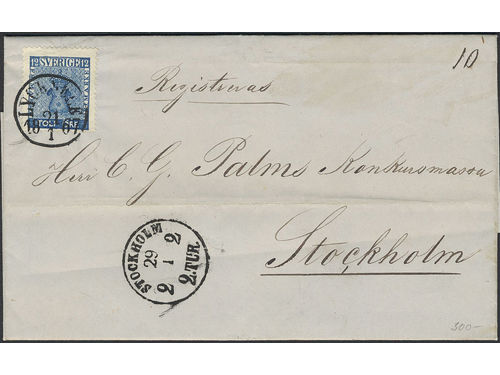 12 SVERIGE 12
TOLF ÖRE
21
1
10
Registreras
Herr C. G. Palms Konkursmassa
Stockholm
STOCKHOLM
29
1
2
2
2. TUR.
300-